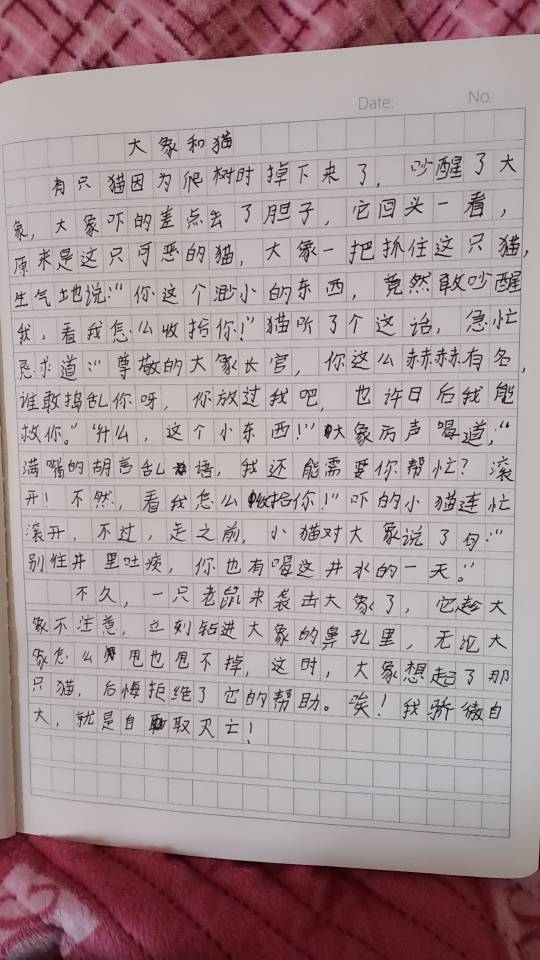 Date:
No.
大象和猫
有只猫因为爬树时掉下来了，吵醒了大
象，大象吓的差点丢了胆子，它回头一看，
原来是这只可恶的猫，大象一把抓住这只猫，
生气地说：“你这个渺小的东西，竟然敢吵醒
我，看我怎么收拾你！”猫听了个这话，急忙
恳求道：“尊敬的大象长官，你这么赫赫有名，
谁敢捣乱你呀，你放过我吧，也许日后我能
救你。”“什么，这个小东西！”大象厉声喝道，“
满嘴的胡言乱语，我还能需要你帮忙？滚
开！不然，看我怎么收拾你！”吓的小猫连忙
滚开，不过，走之前，小猫对大象说了句：“
别往井里吐痰，你也有喝这井水的一天。”
不久，一只老鼠来袭击大象了，它趁大
象不注意，立刻钻进大象的鼻孔里，无论大
象怎么甩也甩不掉，这时，大象想起了那
只猫，后悔拒绝了它的帮助。唉！我骄傲自
大，就是自取灭亡！